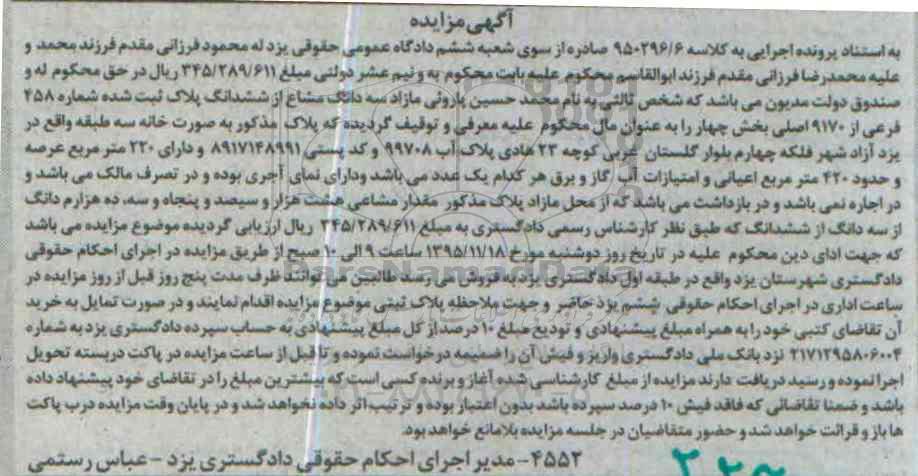 آگهی مزایده
به استناد پرونده اجرایی به کلاسه ۹۵۰۲۹۶/۶ صادره از سوی شعبه ششم دادگاه عمومی حقوقی یزد له محمود فرزانی مقدم فرزند محمد و
علیه محمدرضا فرزانی مقدم فرزند ابوالقاسم محکوم علیه بابت محکوم به و نیم عشر دولتی مبلغ ۳۴۵/۲۸۹/۶۱۱ ریال در حق محکوم له و
صندوق دولت مدیون می باشد که شخص ثالثی به نام محمد حسین پاروئی مازاد سه دانگ مشاع از ششدانگ پلاک ثبت شده شماره ۴۵۸
فرعی از ۹۱۷۰ اصلی بخش چهار را به عنوان مال محکوم علیه معرفی و توقیف گردیده که پلاک مذکور به صورت خانه سه طبقه واقع در
یزد آزاد شهر فلکه چهارم بلوار گلستان غربی کوچه ۲۳ هادی پلاک آب ۹۹۷۰۸ و کد پستی ۸۹۱۷۱۴۸۹۹۱ و دارای ۲۲۰ متر مربع عرصه
و حدود ۴۲۰ متر مربع اعیانی و امتیازات آب گاز و برق هر کدام یک عدد می باشد ودارای نمای آجری بوده و در تصرف مالک می باشد و
در اجاره نمی باشد و در بازداشت می باشد که از محل مازاد پلاک مذکور مقدار مشاعی هشت هزار و سیصد و پنجاه و سه، ده هزارم دانگ
از سه دانگ از ششدانگ که طبق نظر کارشناس رسمی دادگستری به مبلغ ۳۴۵/۲۸۹/۶۱۱ ریال ارزیابی گردیده موضوع مزایده می باشد
که جهت ادای دین محکوم علیه در تاریخ روز دوشنبه مورخ ۱۳۹۵/۱۱/۱۸ ساعت ۹ الی ۱۰ صبح از طریق مزایده در اجرای احکام حقوقی
دادگستری شهرستان یزد واقع در طبقه اول دادگستری یزد به فروش می رسد طالبین می توانند ظرف مدت پنج روز قبل از روز مزایده در
ساعت اداری در اجرای احکام حقوقی ششم یزد حاضر و جهت ملاحظه پلاک ثبتی موضوع مزایده اقدام نمایند و در صورت تمایل به خرید
آن تقاضای کتبی خود را به همراه مبلغ پیشنهادی و تودیع مبلغ ۱۰ درصد از کل مبلغ پیشنهادی به حساب سپرده دادگستری یزد به شماره
۲۱۷۱۲۹۵۸۰۶۰۰۴ نزد بانک ملی دادگستری واریز و فیش آن را ضمیمه درخواست نموده و تا قبل از ساعت مزایده در پاکت دربسته تحویل
اجرا نموده و رسید دریافت دارند مزایده از مبلغ کارشناسی شده آغاز و برنده کسی است که بیشترین مبلغ را در تقاضای خود پیشنهاد داده
باشد و ضمنا تقاضائی که فاقد فیش ۱۰ درصد سپرده باشد بدون اعتبار بوده و ترتیب اثر داده نخواهد شد و در پایان وقت مزایده درب پاکت
ها باز و قرائت خواهد شد و حضور متقاضیان در جلسه مزایده بلامانع خواهد بود.
۴۵۵۲ - مدیر اجرای احکام حقوقی دادگستری یزد - عباس رستمی
ParsNamadData